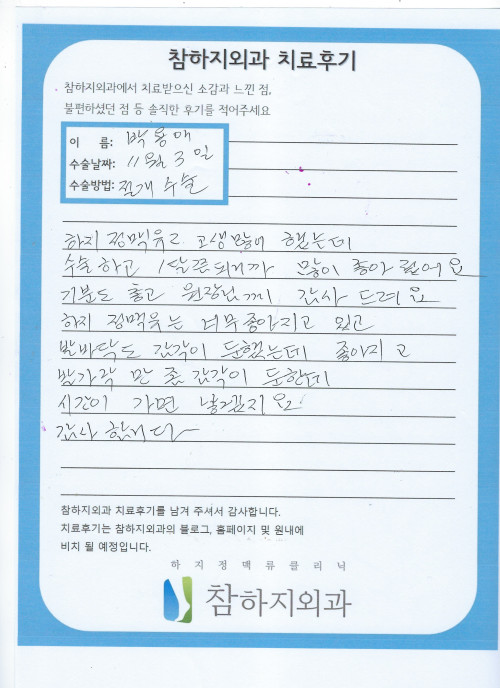 참하지외과 치료후기
참하지외과에서 치료받으신 소감과 느낀 점,
불편하셨던 점 등 솔직한 후기를 적어주세요
이 름: 박용매
수술날짜: 11월 3일
수술방법: 절개 수술
하지 정맥유로 고생많이 했는데
수술하고 1달쯤되니까 많이 좋아 졌어요
기분도 좋고 원장님께 감사 드려요
하지 정맥유는 너무좋아지고 있고
발바닥도 감각이 둔했는데 좋아지고
발가락 만 좀 감각이 둔한데
시간이 가면 낳겠지요
감사 합니다
참하지외과 치료후기를 남겨 주셔서 감사합니다.
치료후기는 참하지외과의 블로그, 홈페이지 및 원내에
비치 될 예정입니다.
하지정맥류클리닉
참하지외과